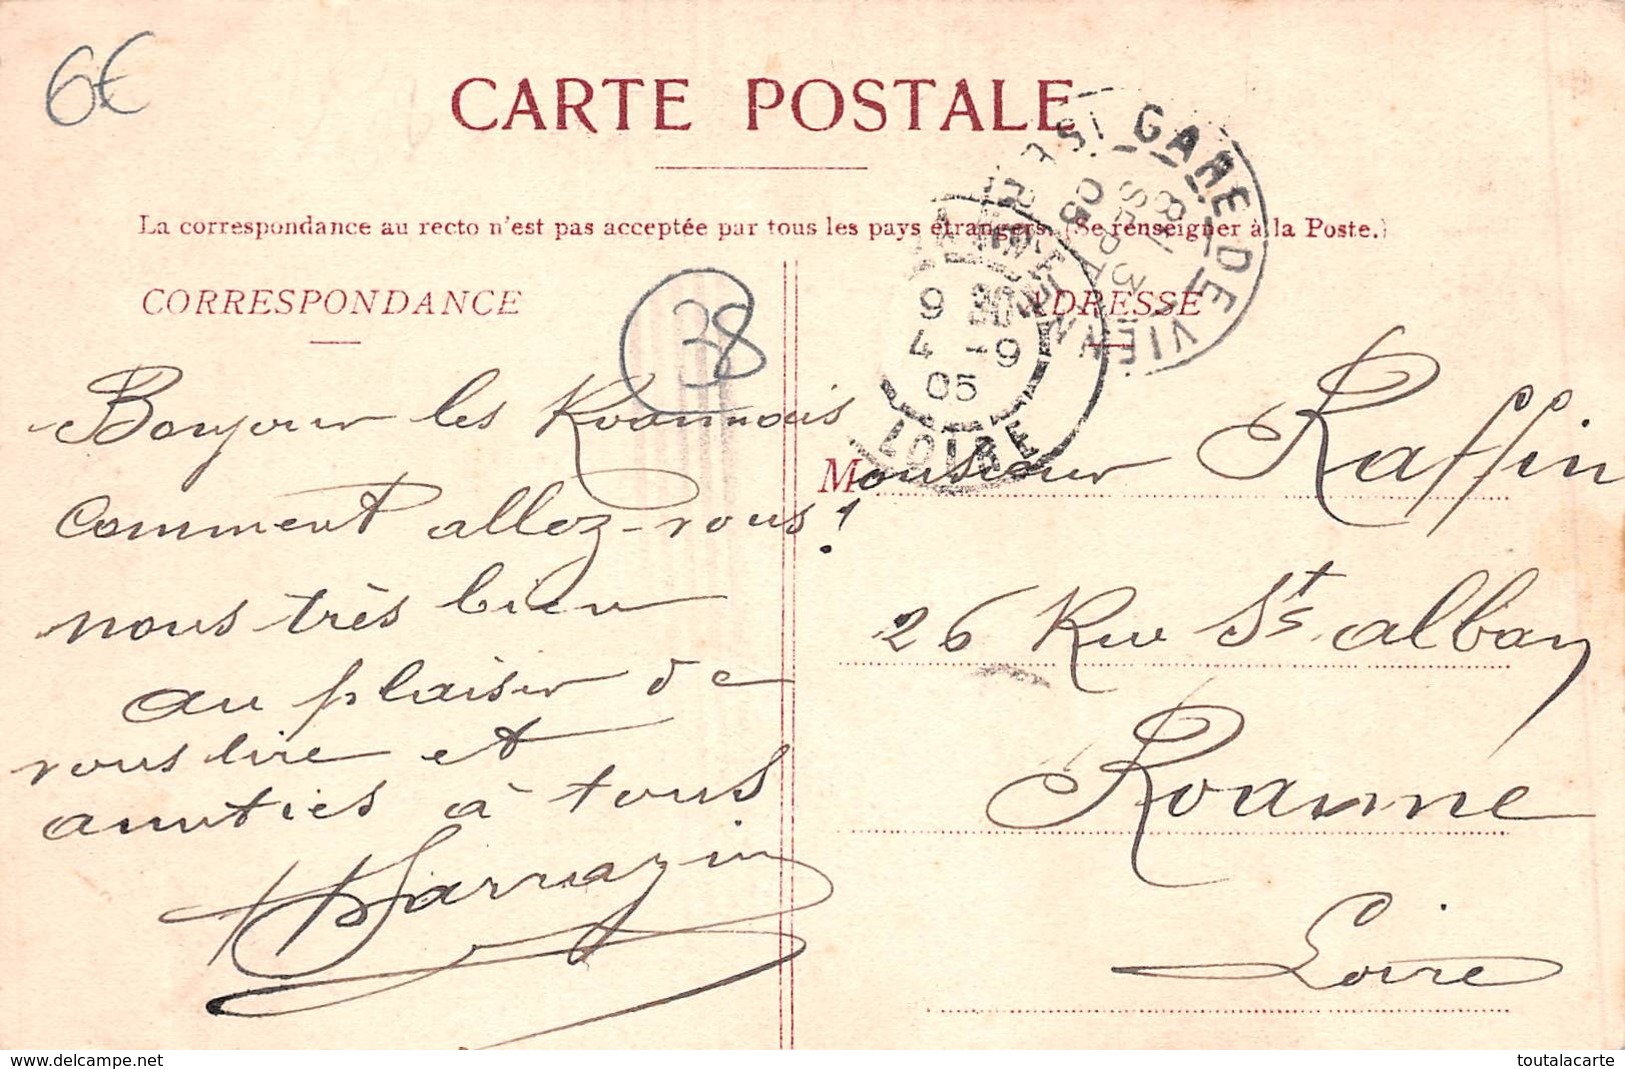 6€
CARTE POSTALE
La correspondance au recto n'est pas acceptée par tous les pays étrangers. (Se renseigner à la Poste.)
CORRESPONDANCE
38
Bonjour les Roannais
comment allez-vous!
nous très bien
au plaisir de
vous lire et
amitiés à tous
Sarrazin
ADRESSE
GARE DE VIENNE
ISÈRE
8
3
SEPT
05
9 30
4 -9
05
LOIRE
Monsieur Raffin
26 Rue St. alban
Roanne
Loire
www.delcampe.net
toutalacarte